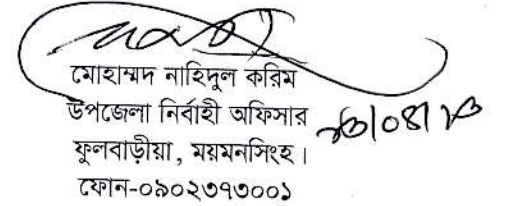 মোহাম্মদ নাহিদুল করিম
উপজেলা নির্বাহী অফিসার
ফুলবাড়ীয়া, ময়মনসিংহ।
ফোন-০৯০২৩৭৩০০১